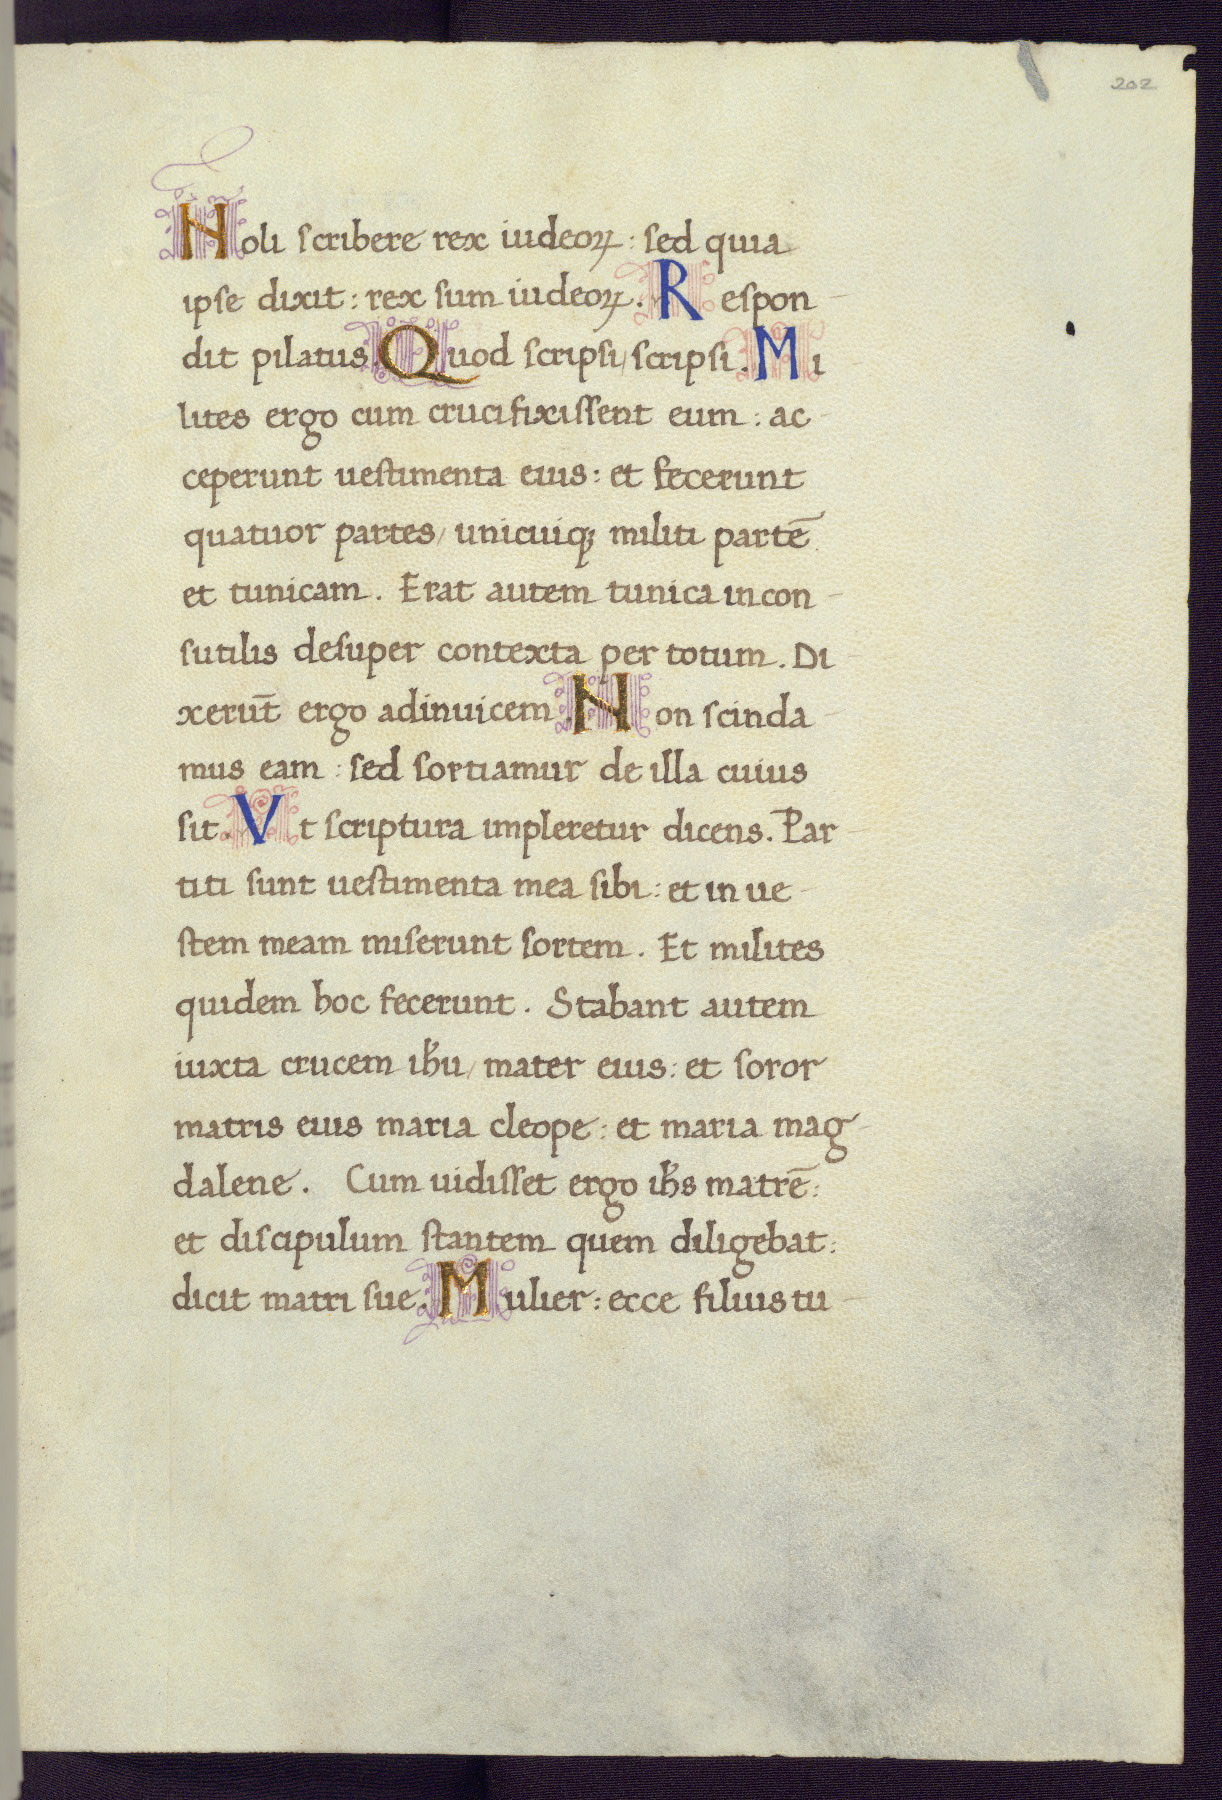 202
Noli scribere rex iudeoꝝ: sed quia
ipse dixit: rex sum iudeoꝝ. Respon-
dit pilatus. Quod scripsi/ scripsi. Mi
lites ergo cum crucifixissent eum: ac-
ceperunt uestimenta eius: et fecerunt
quatuor partes/ unicuiqꝫ militi partē
et tunicam. Erat autem tunica incon-
sutilis desuper contexta per totum. Di-
xerut̄ ergo adinuicem. Non scinda-
mus eam: sed sortiamur de illa cuius
sit. Vt scriptura impleretur dicens. Par-
titi sunt uestimenta mea sibi: et in ue-
stem meam miserunt sortem. Et milites
quidem hoc fecerunt. Stabant autem
iuxta crucem ihu̅/ mater eius: et soror
matris eius maria cleope: et maria mag-
dalene. Cum uidisset ergo ihs̅ matrē:
et discipulum stantem quem diligebat:
dicit matri sue. Mulier: ecce filius tu-